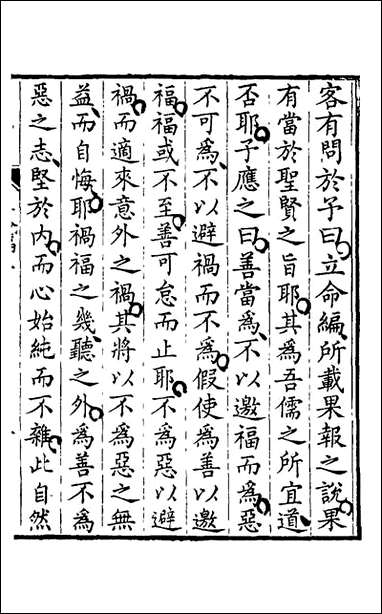 客有問於予曰立命編所載果報之說果
有當於聖賢之旨耶其爲吾儒之所宜道
否耶予應之曰善當爲不以邀福而爲惡
不可爲不以避禍而不爲假使爲善以邀
福福或不至善可怠而止耶不爲惡以避
禍而適來意外之禍其將以不爲惡之無
益而自悔耶禍福之幾聽之外爲善不爲
惡之志堅於內而心始純而不雜此自然